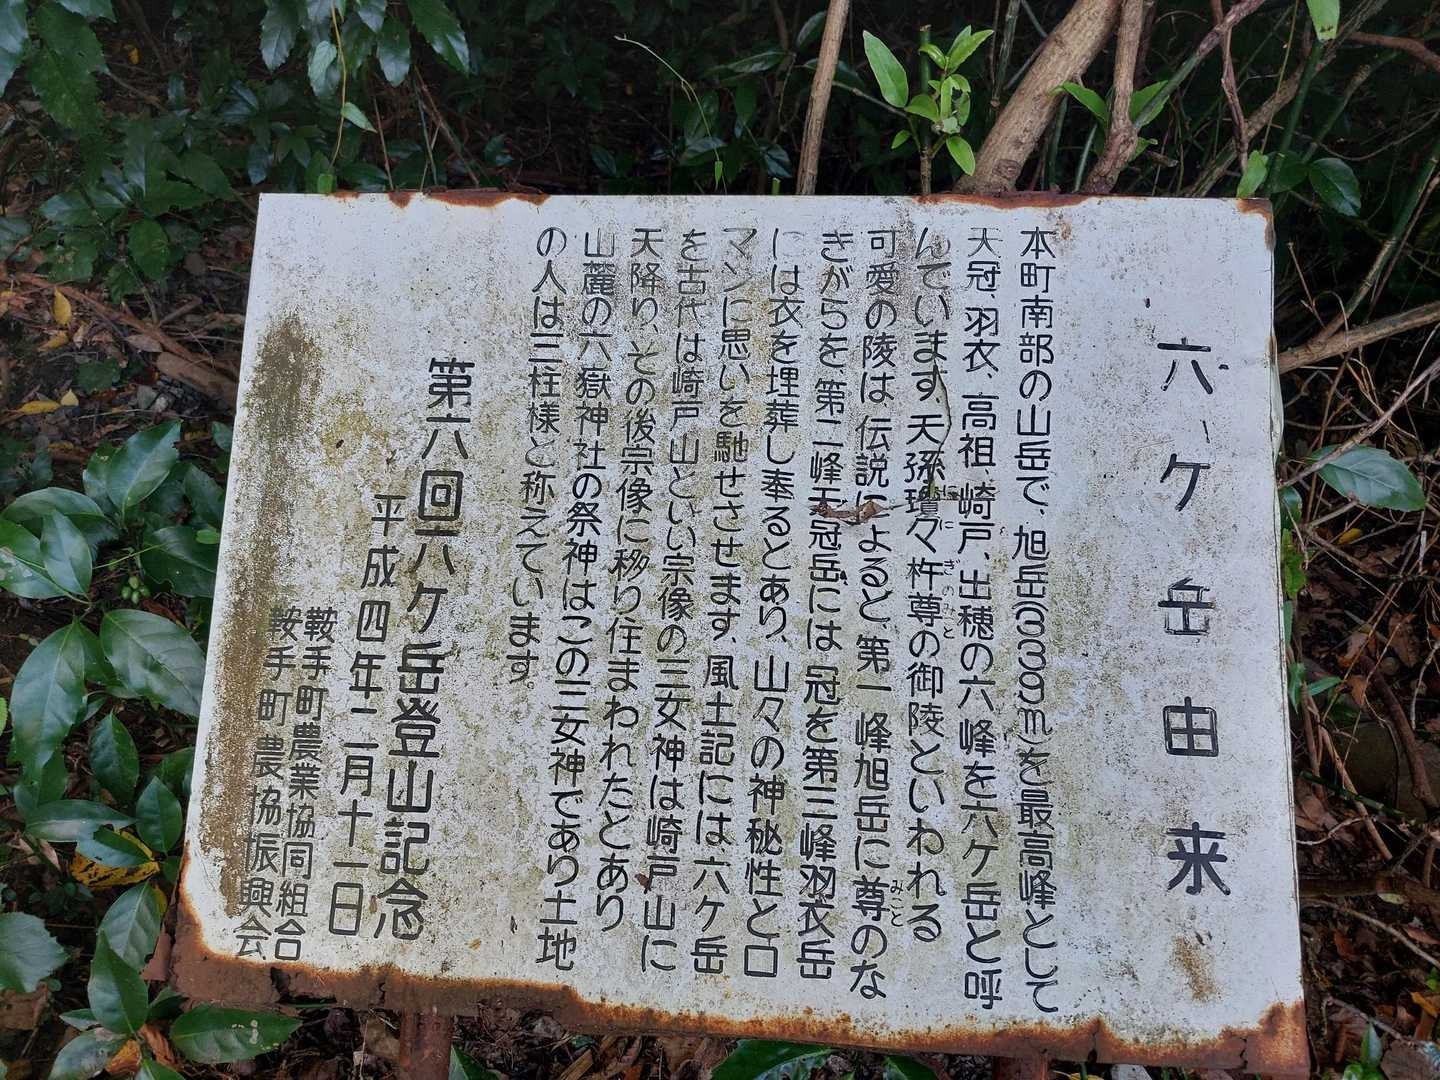 六ケ岳由来
本町南部の山岳で、旭岳(339m)を最高峰として
天冠、羽衣、高祖、崎戸、出穂の六峰を六ケ岳と呼
んでいます。天孫瓊々杵尊の御陵といわれる
ににぎのみこと
可愛の陵は伝説によると、第一峰旭岳に尊のな
みこと
きがらを第二峰天冠岳には冠を第三峰羽衣岳
には衣を埋葬し奉るとあり、山々の神秘性とロ
マンに思いを馳せさせます。風土記には六ケ岳
を古代は崎戸山といい宗像の三女神は崎戸山に
天降り、その後宗像に移り住まわれたとあり
山麓の六嶽神社の祭神はこの三女神であり土地
の人は三柱様と称えています。
第六回六ケ岳登山記念
平成四年二月十一日
鞍手町農業協同組合
鞍手町農協振興会